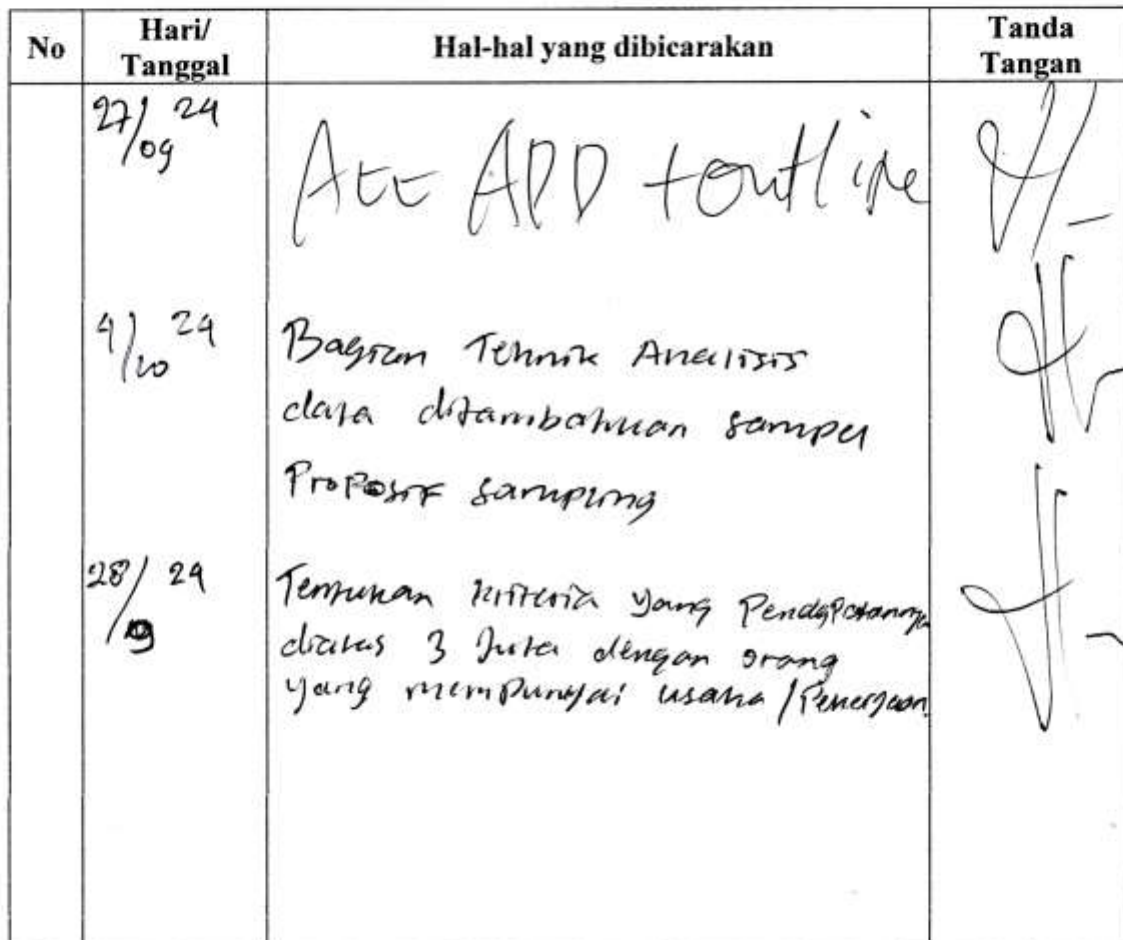 No
Hari/
Tanggal
Hal-hal yang dibicarakan
Tanda
Tangan
27/09 24
Acc APD + outline
4/10 24
Bagian Teknik Analisis
data ditambahkan sampel
Proposif sampling
28/ 24
Tentukan kriteria yang Pendapatannya
diatas 3 Juta dengan orang
yang mempunyai usaha/Pekerjaan.